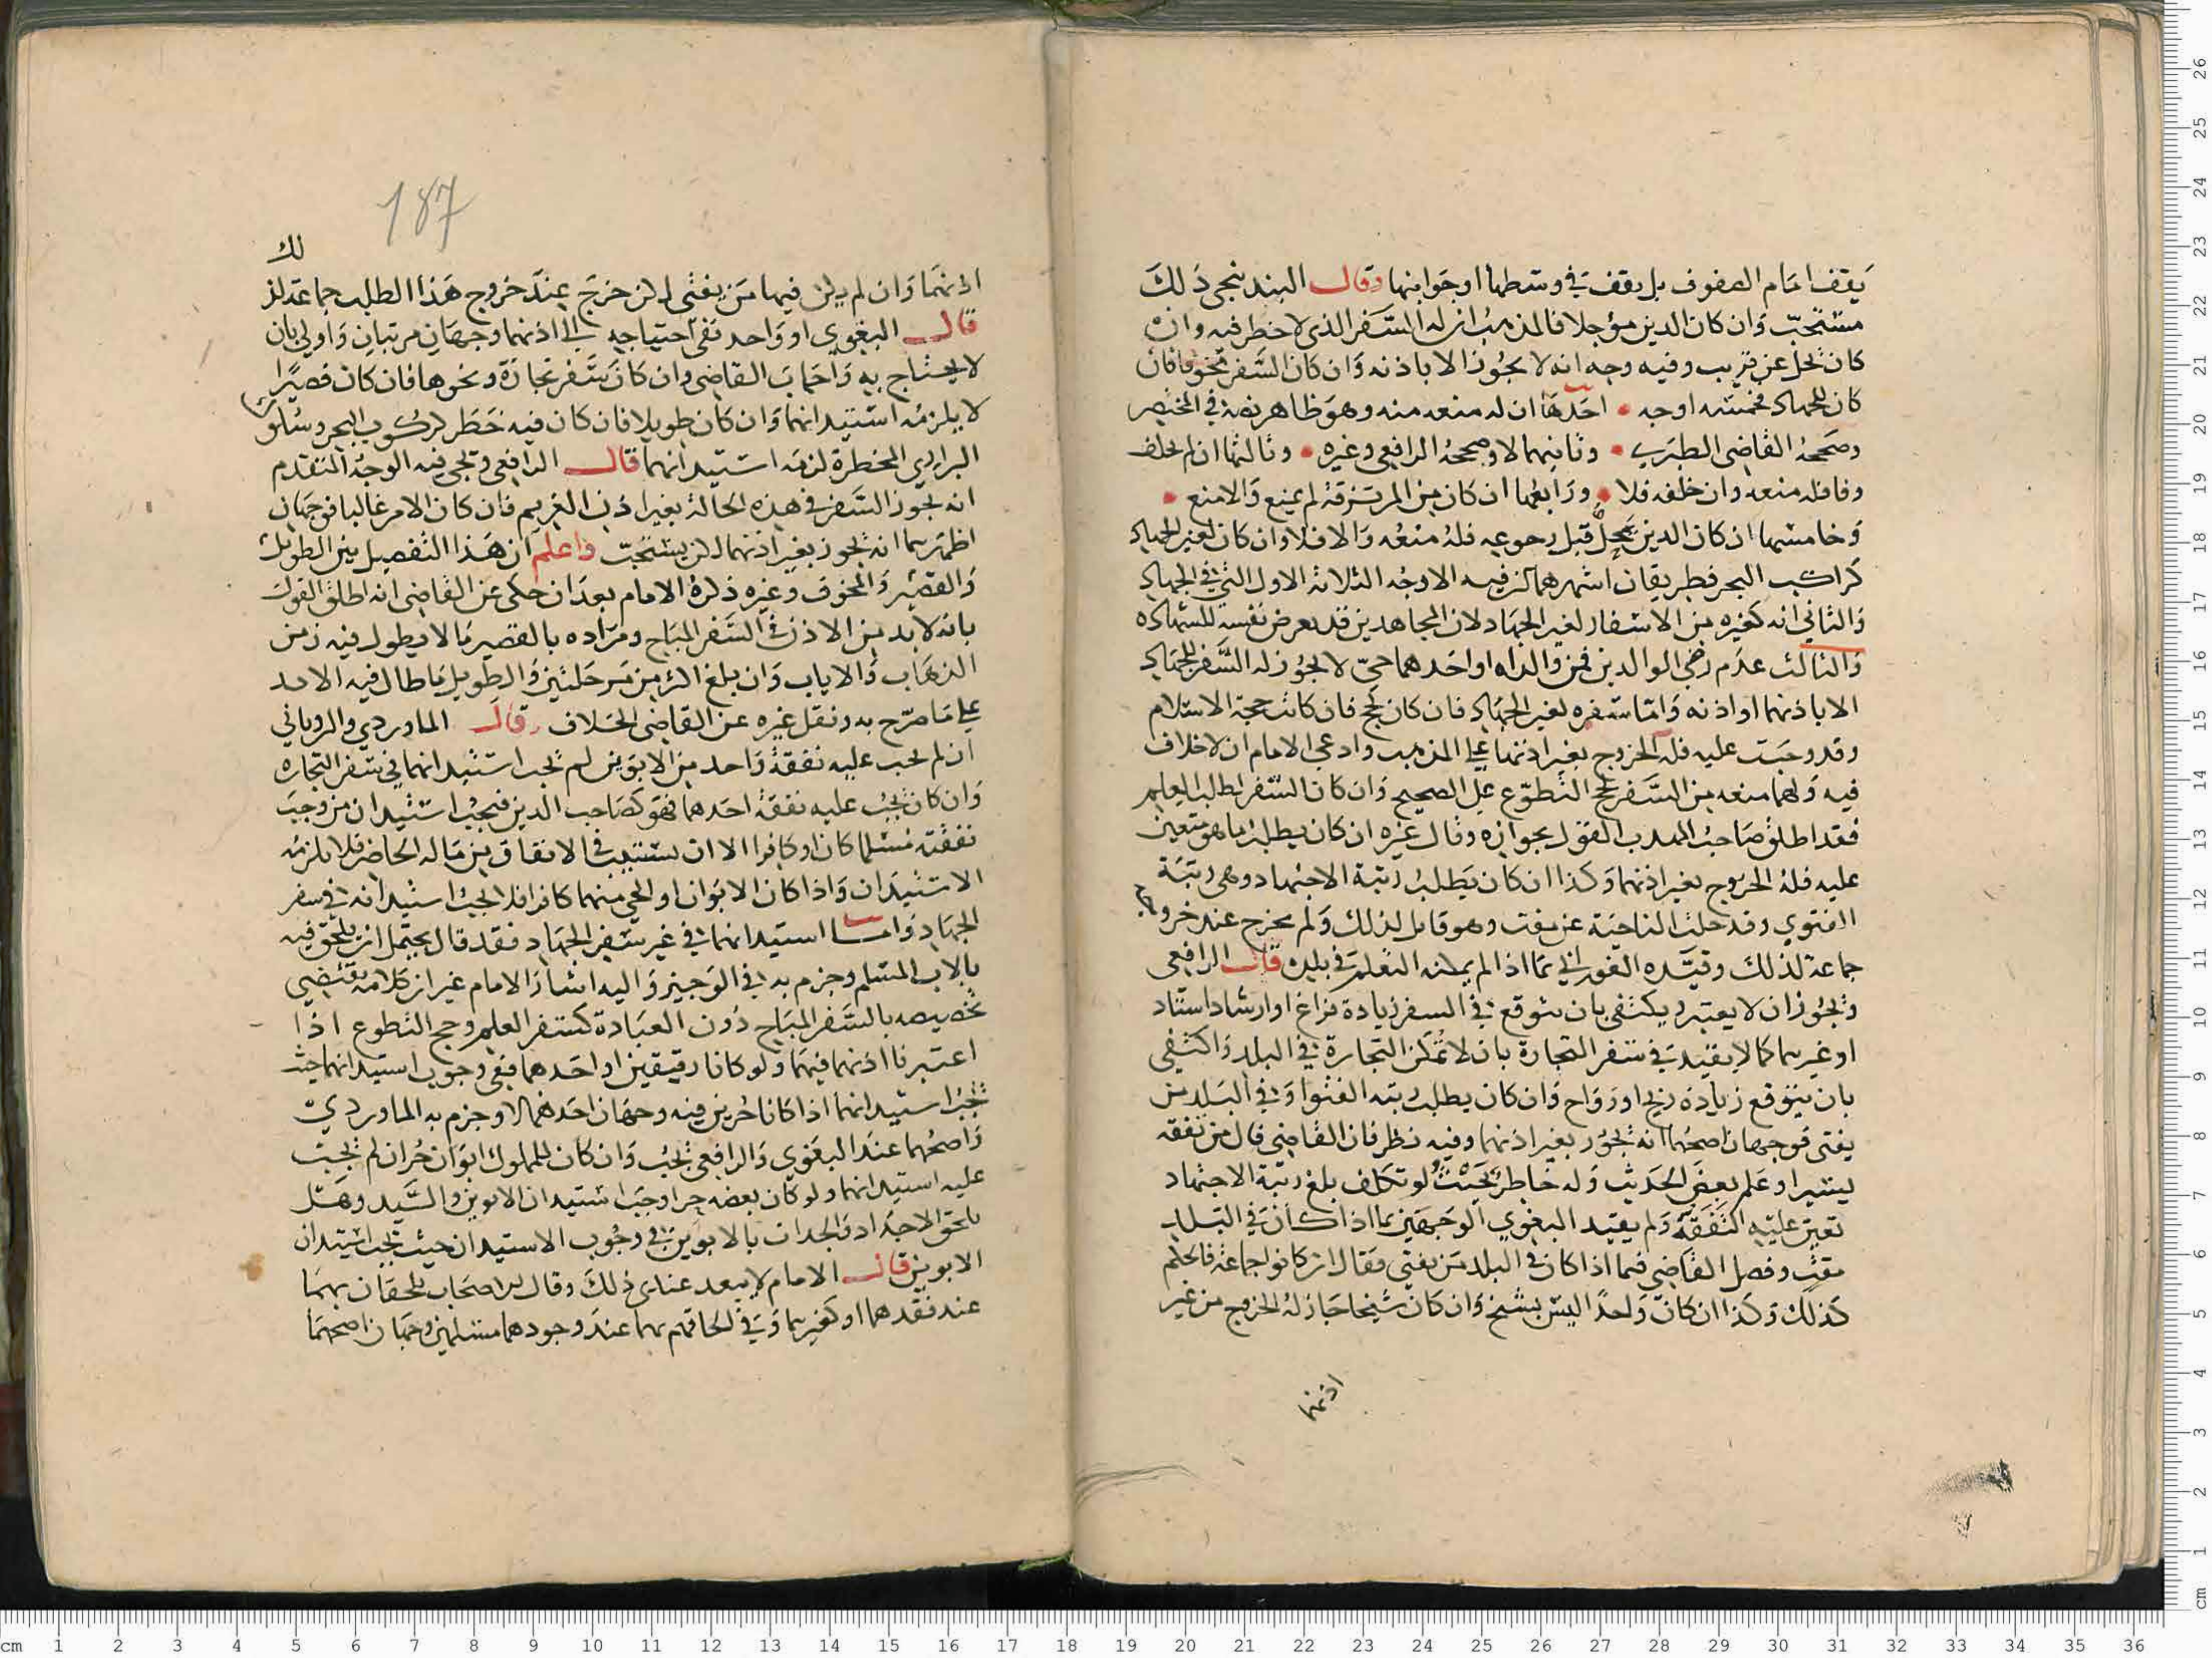 يقف امام الصفوف بل يقف في وسطها او جوانبها وقال البندنيجي ذلك
مستحب وان كان الدين مؤجلا فالمذهب ان له السفر الذي لا خطر فيه وان
كان يحل عن قريب وفيه وجه انه لا يجوز الا باذنه وان كان السفر مخوفا فان
كان للجهاد فخمسة اوجه احدها ان له منعه منه وهو ظاهر نصه في المختصر
وصححه القاضي الطبري وثانيها لا وصححه الرافعي وغيره وثالثها ان لم يخلف
وفا فله منعه وان خلفه فلا ورابعها ان كان من المرتزقة لم يمنع والا منع
وخامسها ان كان الدين يحل قبل رجوعه فله منعه والا فلا وان كان لغير الجهاد
كراكب البحر فطريقان اشهرهما ان فيه الاوجه الثلاثة الاول التي في الجهاد
والثاني انه كغيره من الاسفار لغير الجهاد لان المجاهدين قد يعرض نفسه للشهاده
والثالث عدم رضي الوالدين فمن والداه او احدهما حي لا يجوز له السفر للجهاد
الا باذنهما او اذنه واما سفره لغير الجهاد فان كان لحج فان كانت حجة الاسلام
وقد وجبت عليه فله الخروج بغير اذنهما علي المذهب وادعي الامام ان لا خلاف
فيه ولهما منعه من السفر لحج التطوع على الصحيح وان كان السفر لطلب العلم
فقد اطلق صاحب المهذب القول بجوازه وقال غيره ان كان يطلب ما هو متعين
عليه فله الخروج بغير اذنهما وكذا ان كان يطلب رتبة الاجتهاد وهي رتبة
الفتوي وقد خلت الناحية عن مفت وهو قابل لذلك ولم يخرج عند خروجه
جماعة لذلك وقيده الفوراني بما اذا لم يمكنه التعلم في بلده قال الرافعي
ويجوز ان لا يعتبر ويكتفي بان يتوقع في السفر زيادة فراغ او ارشاد استاد
او غيرهما كما لا يقيد في سفر التجارة بان لا تمكن التجارة في البلد واكتفي
بان يتوقع زيادة ربح او رواج وان كان يطلب رتبه الفتوا وفي البلد من
يفتي فوجهان اصحهما انه يجوز بغير اذنهما وفيه نظر فان القاضي قال من تفقه
يسيرا وعلم بعض الحديث وله خاطر بحيث لو تكلف بلغ رتبة الاجتهاد
تعين عليه التفقه ولم يقيد البغوي الوجهين بما اذا كان في البلد
مفت وفصل القاضي فيما اذا كان في البلد من يفتي فقال ان كانوا جماعة فالحكم
كذلك وكذا ان كان واحدا ليس بشيخ وان كان شيخا جاز له الخروج من غير
اذنهما
187
لك
اذنهما وان لم يكن فيها من يفتي لكن خرج عند خروج هذا الطلب جماعة لذ
قال البغوي او واحد نفى احتياجه الى اذنهما وجهان مرتبان واولي بان
لا يحتاج به واجاب القاضي وان كان سفر تجارة ونحوها فان كان قصيرا
لا يلزمه استيذانهما وان كان طويلا فان كان فيه خطر لركوب البحر وسلوك
البراري المخطرة لزمه استيذانهما قال الرافعي ويجي فيه الوجه المتقدم
انه يجوز السفر في هذه الحالة بغير اذن الغريم فان كان الامر غالبا فوجهان
اظهرهما انه يجوز بغير اذنهما لكن يستحب واعلم ان هذا التفصيل بين الطويل
والقصير والمخوف وغيره ذكره الامام بعد ان حكى عن القاضي انه اطلق القول
بانه لابد من الاذن في السفر المباح ومراده بالقصير ما لا يطول فيه زمن
الذهاب والاياب وان بلغ اكثر من مرحلتين والطويل ما طال فيه الامد
علي ما صرح به ونقل غيره عن القاضي الخلاف قال الماوردي والروياني
ان لم يجب عليه نفقة واحد من الابوين لم يجب استيذانهما في سفر التجاره
وان كان يجب عليه نفقة احدهما فهو كصاحب الدين فيجب استيذان من وجبت
نفقته مسلما كان او كافرا الا ان يستنيب في الانفاق من ماله الحاضر فلا يلزمه
الاستيذان واذا كان الابوان او الحي منهما كافرا فلا يجب استيذانه في سفر
الجهاد واما استيذانهما في غير سفر الجهاد فقد قال يحتمل ان يلحق فيه
بالاب المسلم وجزم به في الوجيز واليه اشار الامام غير ان كلامه يقتضي
تخصيصه بالسفر المباح دون العبادة كسفر العلم وحج التطوع اذا
اعتبرنا اذنهما فيهما ولو كانا رقيقين او احدهما ففي وجوب استيذانهما حيث
يجب استيذانهما اذا كانا حرين فيه وجهان احدهما لا وجزم به الماوردي
واصحهما عند البغوي والرافعي يجب وان كان للمملوك ابوان حران لم يجب
عليه استيذانهما ولو كان بعضه حرا وجب استيذان الابوين والسيد وهل
يلحق الاجداد والجدات بالابوين في وجوب الاستيذان حيث يجب استيذان
الابوين قال الامام لا يبعد عندي ذلك وقال الاصحاب يلحقان بهما
عند فقدهما او كغيرهما وفي الحاقهم بهما عند وجودهما مسلمين وجهان اصحهما